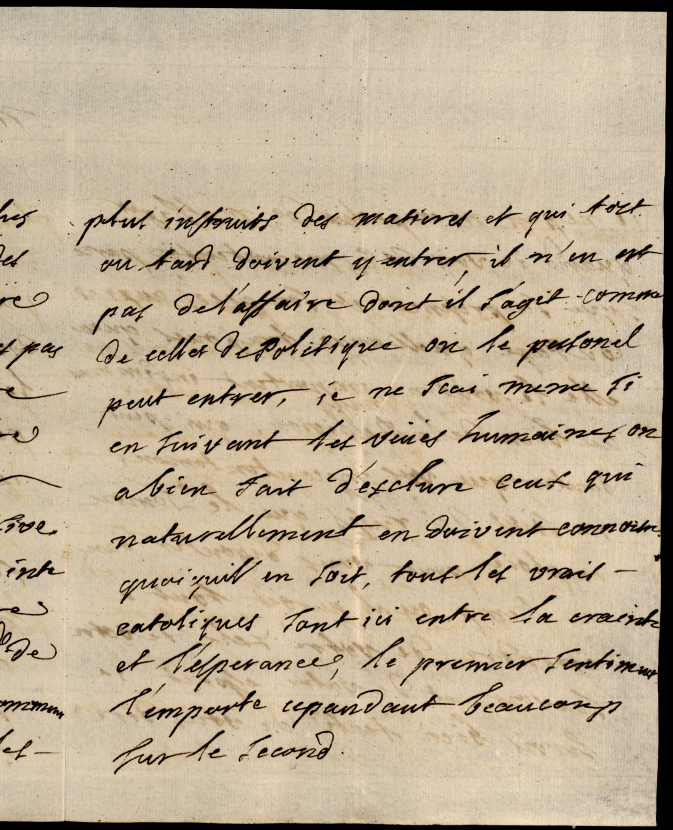 plus instruits des matieres et qui tost
ou tard doivent y entrer, il n'en est
pas de l'affaire dont il s'agit comme
de celles de Politique ou le personel
peut entrer, je ne scai meme si
en suivant les veües humaines on
a bien fait d'exclure ceux qui
naturellement en doivent connoitre.
quoiquil en soit, tous les vrais —
catoliques sont ici entre la crainte
et l'esperance, le premier sentiment
l'emporte cependant beaucoup
sur le second.